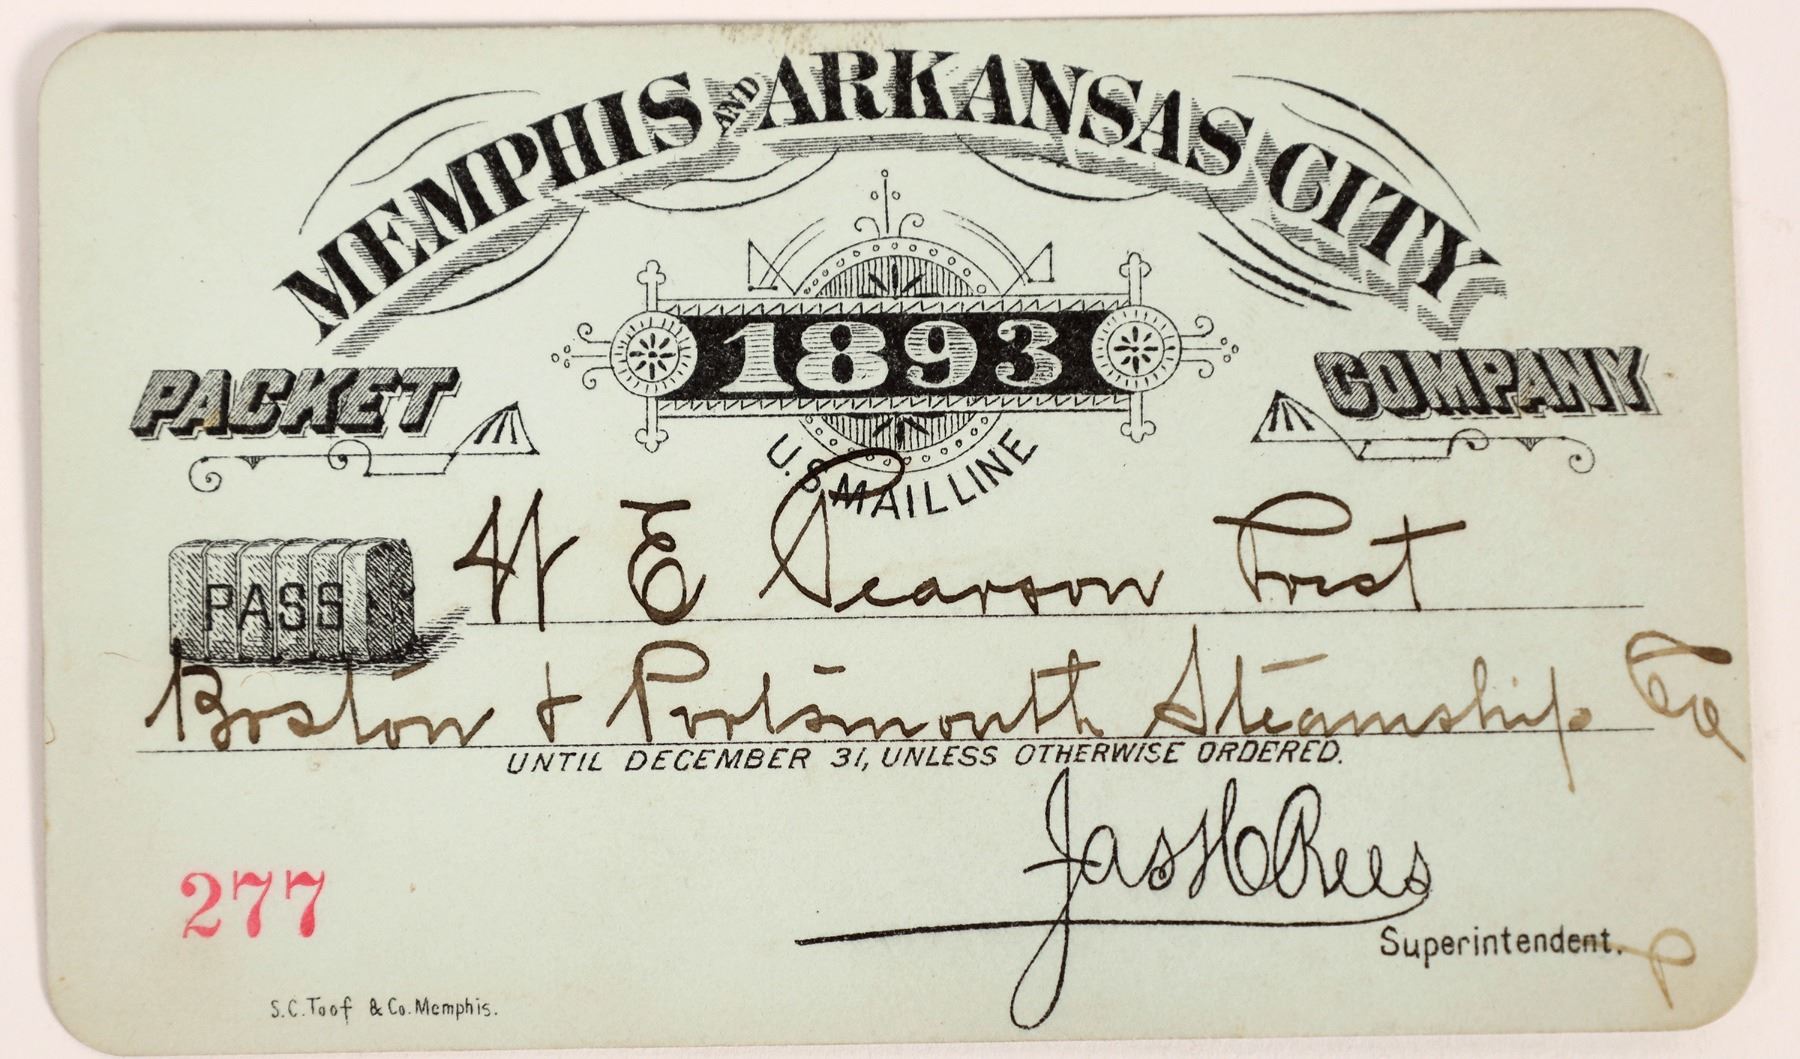 MEMPHIS AND ARKANSAS CITY
PACKET COMPANY
1893
U.S. MAIL LINE
PASS H E Pearson Prest
Boston & Portsmouth Steamship Co
UNTIL DECEMBER 31, UNLESS OTHERWISE ORDERED.
Jas H Rees
Superintendent.
277
S.C. Toof & Co. Memphis.